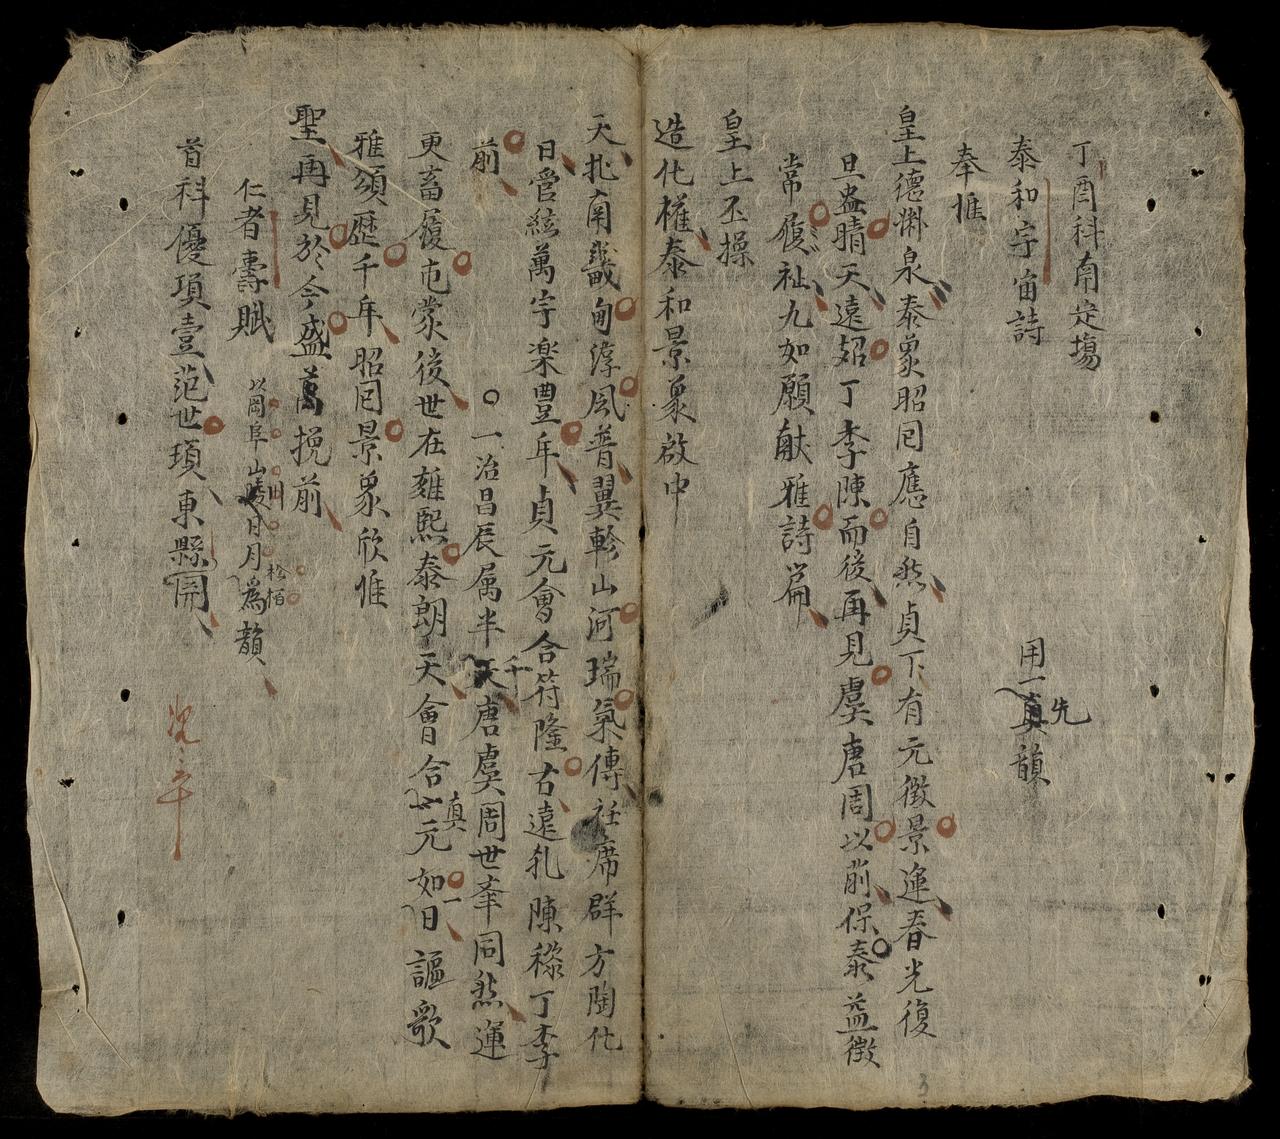 丁酉科南定塲
泰和宇宙詩
用一先韻
奉惟
皇上德淵泉泰象昭囘應自然貞下有元徵景運春光復
旦盎晴天遠超丁李陳而後再見虞唐周以前保泰益徵
常履祉九如願献雅詩篇
皇上丕操
造化權泰和景象啟中
天北南畿甸淳風普翼軫山河瑞氣傳衽席群方陶化
日管絃萬宇楽豊年貞元會合符隆古遠軋陳黎丁李
前
一治昌辰属半千唐虞周世筆同然運
更畜履屯蒙後世在雍熙泰朗天會合真元如一日謳歌
雅頌歴千年昭囘景象欣惟
聖再見於今盛萬挽前
仁者壽賦
以岡阜山川日月松栢爲韻
首科優項壹范世瑣東縣
3